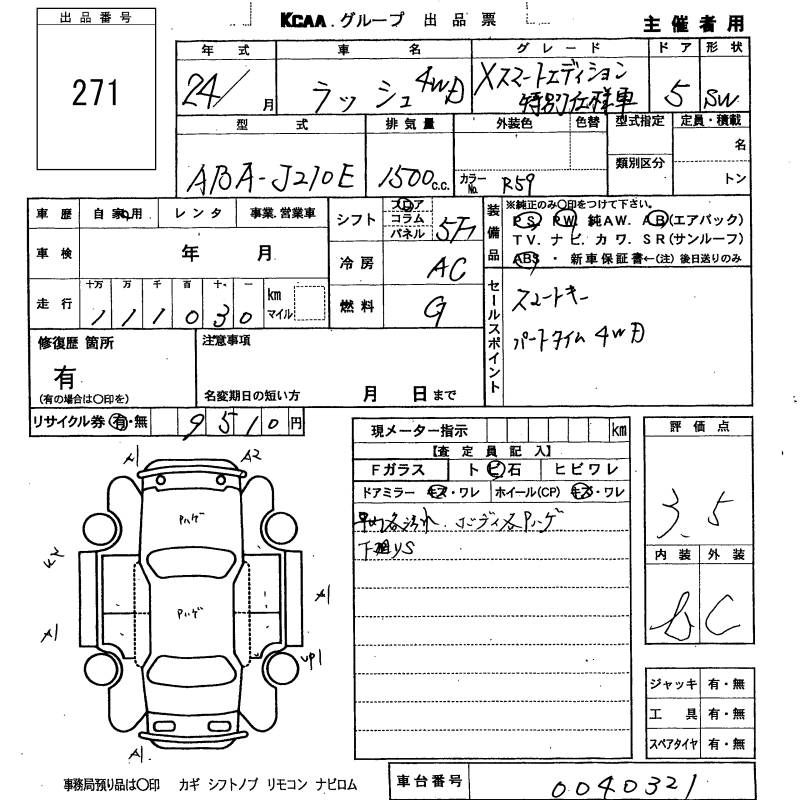 出品番号
271
KCAA.グループ 出品票
主催者用
年式 車名 グレード ドア 形状
24/ 月 ラッシュ 4WD Xスマートエディション 特別仕様車 5 SW
型式 排気量 外装色 色替 型式指定 定員・積載
名
類別区分
トン
ABA-J210E 1500 c.c. カラーNo. R59
車歴 自家用 レンタ 事業.営業車
シフト フロア コラム パネル 5F
装備品 ※純正のみ○印をつけて下さい。
PS PW 純AW. AB(エアバック)
TV. ナビ. カワ. SR(サンルーフ)
ABS ・ 新車保証書←(注) 後日送りのみ
車検 年 月
冷房 AC
走行 十万 万 千 百 十 一 km マイル
1 1 1 0 3 0
燃料 G
セールスポイント
スマートキー
パートタイム4WD
修復歴 箇所
有
(有の場合は○印を)
注意事項
名変期日の短い方 月 日まで
リサイクル券 有・無 9510円
現メーター指示 km
【査定員記入】
Fガラス トビ石 ヒビワレ
ドアミラー キズ・ワレ ホイール(CP) キズ・ワレ
ボディ各Pハゲ
評価点
3.5
内装 外装
b C
A1 A2
Pハゲ
A1
Pハゲ
A1
A1
ジャッキ 有・無
工具 有・無
スペアタイヤ 有・無
事務局預り品は○印 カギ シフトノブ リモコン ナビロム
車台番号 0040321